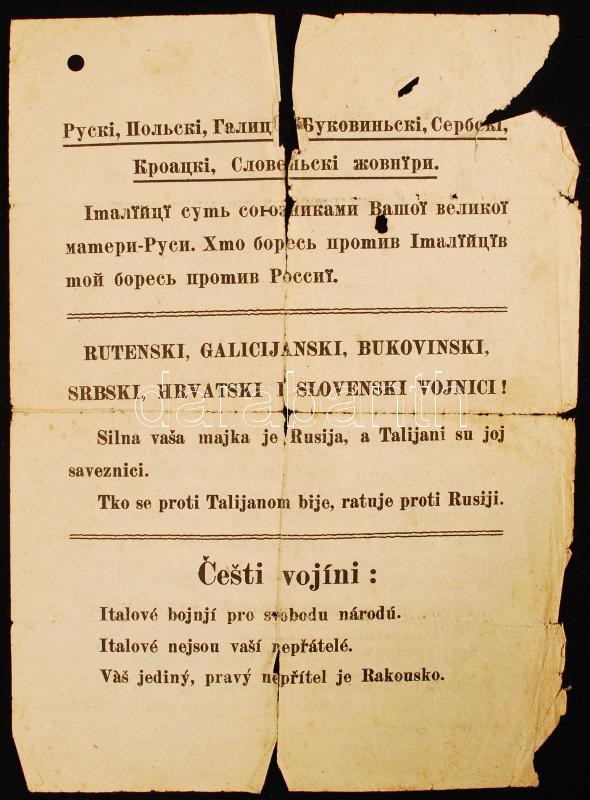 Рускі, Польскі, Галиц Буковиньскі, Сербскі,
Кроацкі, Словеньскі жовнїри.
Італїйцї суть союзниками Вашої великої
матери-Руси. Хто боресь против Італїйцїв
той боресь против Россиї.
RUTENSKI, GALICIJANSKI, BUKOVINSKI,
SRBSKI, HRVATSKI I SLOVENSKI VOJNICI!
darabanth
Silna vaša majka je Rusija, a Talijani su joj
saveznici.
Tko se proti Talijanom bije, ratuje proti Rusiji.
Češti vojíni:
Italové bojnjí pro svobodu národú.
Italové nejsou vaší nepřátelé.
Vàš jediný, pravý nepřítel je Rakousko.